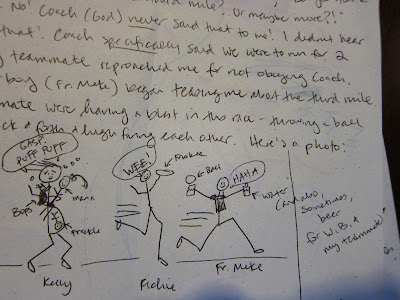 mile?
Or maybe more?!"
No! Coach (God) never said that to me! I didn't hear
that'. Coach specifically said we were to run for 2
teammate reproached me for not obeying Coach.
boy (Fr. Meke) began teasing me about the third mile.
mate were having a blast in this race - throwing a ball
ck & forth & high fiving each other. Here's a photo:
GASP
PUFF PUFF
WEE!
Frisbee
Ball
HAHA
Water
(and also,
sometimes,
beer
for W.B. &
my teammate)
Bop
mana
Freckle
Kelly
Richie
Fr. Meke